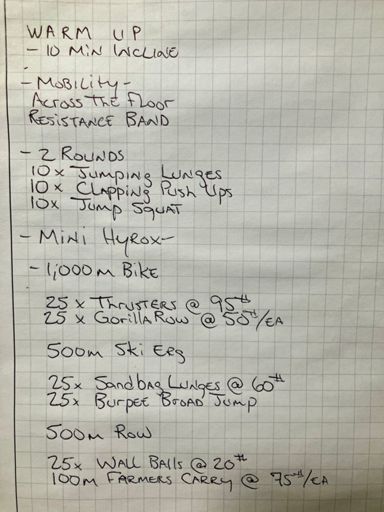 WARM UP
- 10 MIN INCLINE
-
- MOBILITY -
ACROSS THE FLOOR
RESISTANCE BAND
- 2 ROUNDS
10x JUMPING LUNGES
10x CLAPPING PUSH UPS
10x JUMP SQUAT
- MINI HYROX -
- 1,000M BIKE
25 x THRUSTERS @ 95#
25 x GORILLA ROW @ 50#/EA
500M SKI ERG
25x SANDBAG LUNGES @ 60#
25x BURPEE BROAD JUMP
500M ROW
25x WALL BALLS @ 20#
100M FARMERS CARRY @ 75#/EA